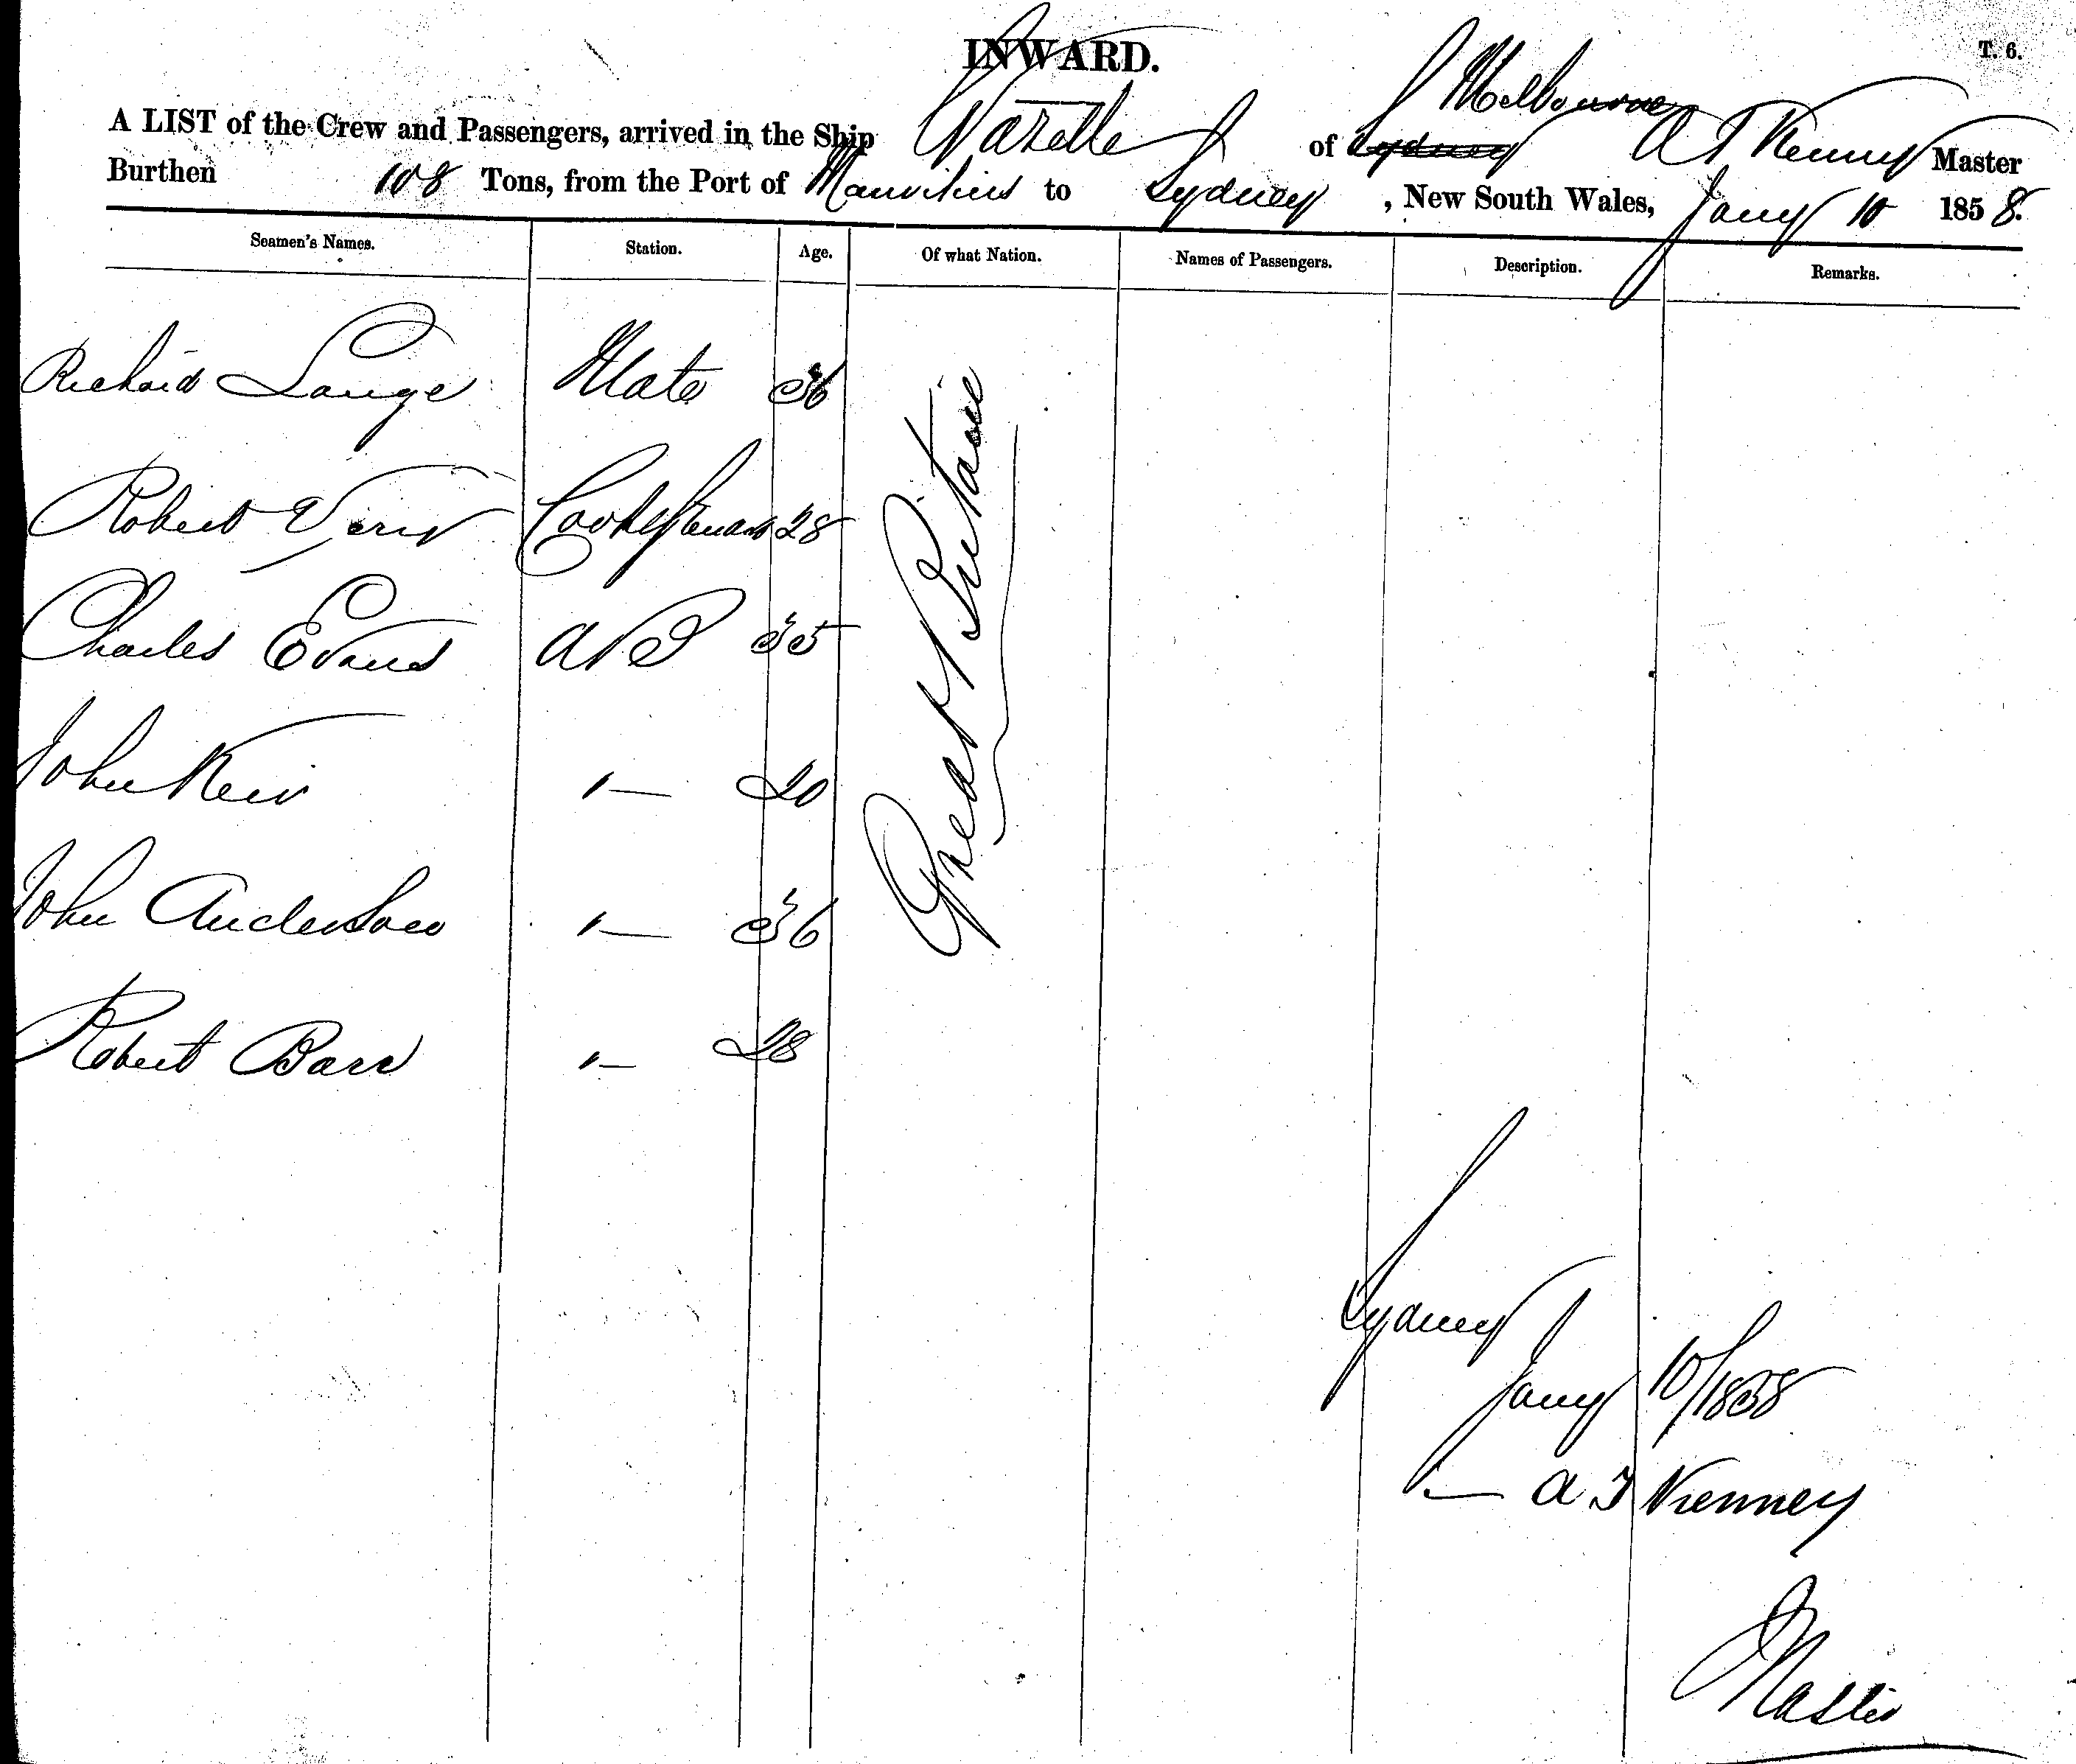 INWARD.
T. 6.
A LIST of the Crew and Passengers, arrived in the Ship Gazelle of Sydney Melbourne A T Kenney Master
Burthen 108 Tons, from the Port of Mauritius to Sydney, New South Wales, Jany 10 1858.
Seamen's Names. Station. Age. Of what Nation. Names of Passengers. Description. Remarks.
Richard Lange Mate 36
Robert Cook & Steward 28
Charles Evans AB 35
John Keir "— 20
John Anderson "— 36
Robert Barr "— 28
Great Britain
Sydney
Jany 10/1858
A T Kenney
Master